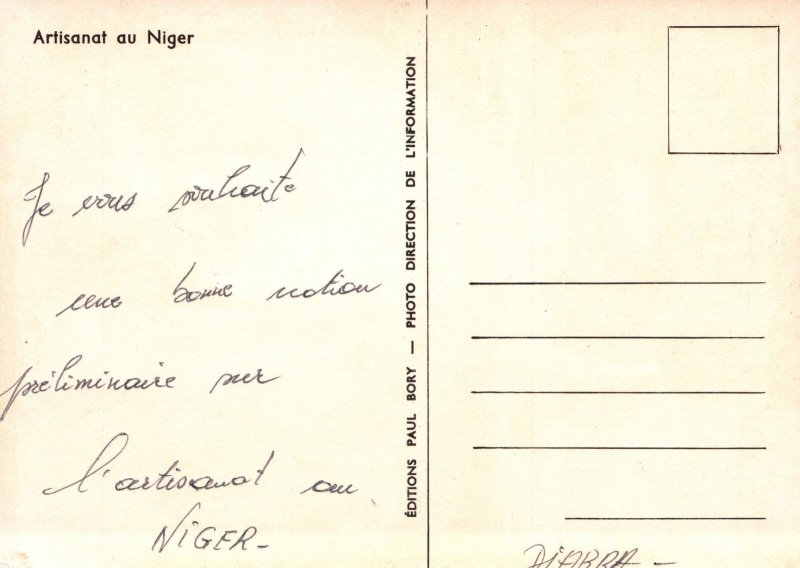 Artisanat au Niger
Je vous souhaite
une bonne notion
préliminaire sur
l'artisanat au
NIGER-
ÉDITIONS PAUL BORY — PHOTO DIRECTION DE L'INFORMATION
DIARRA -